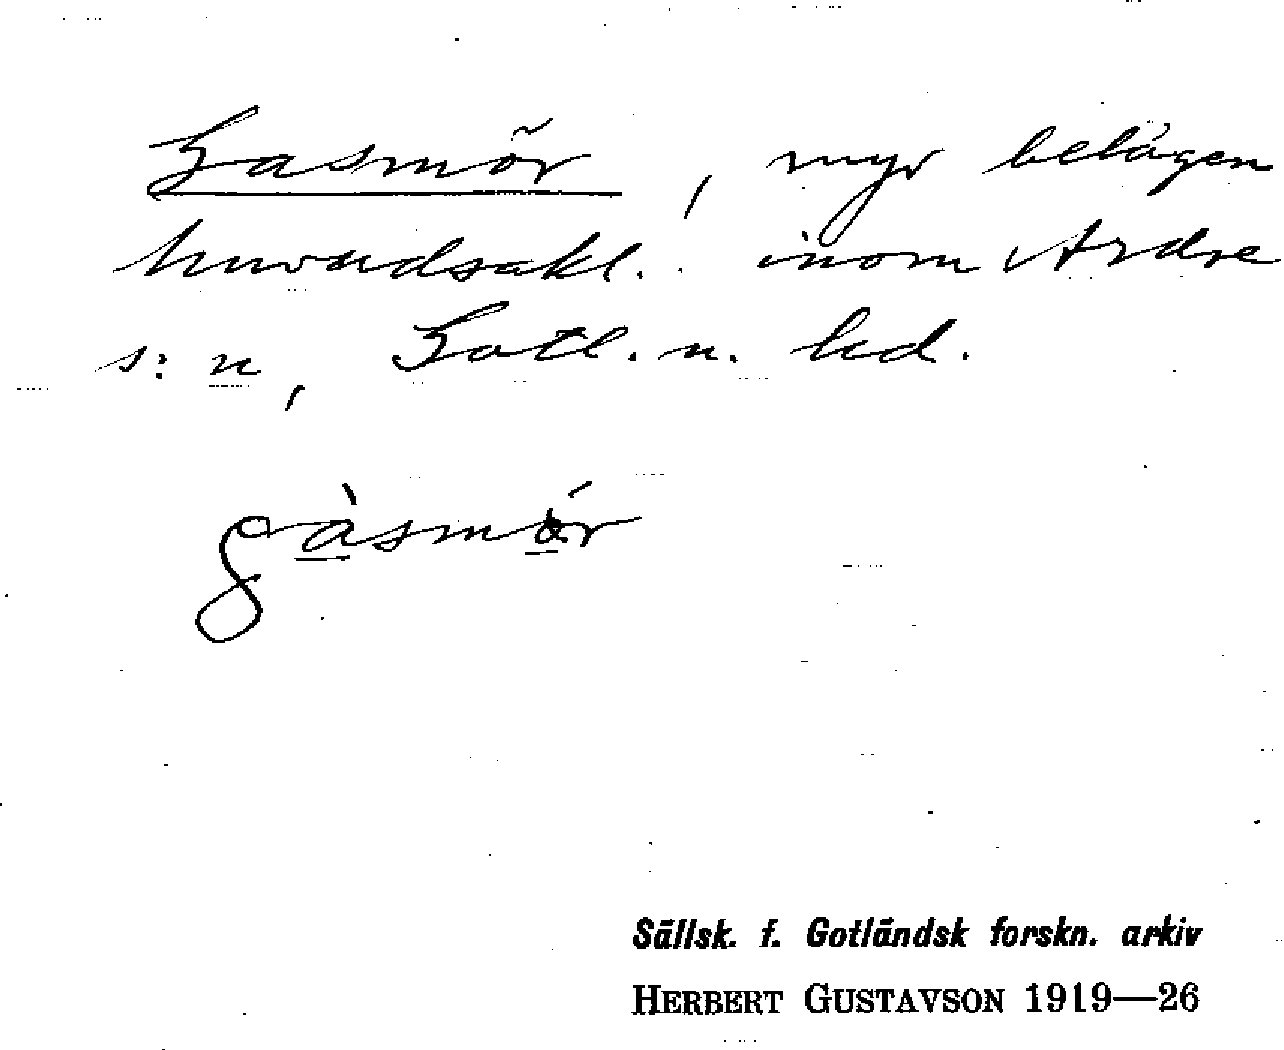 Gasmör, myr belägen
huvudsakl. inom Ardre
s:n, Gotl. n. hd.
gàsmǿr
Sällsk. f. Gotländsk forskn. arkiv
HERBERT GUSTAVSON 1919—26